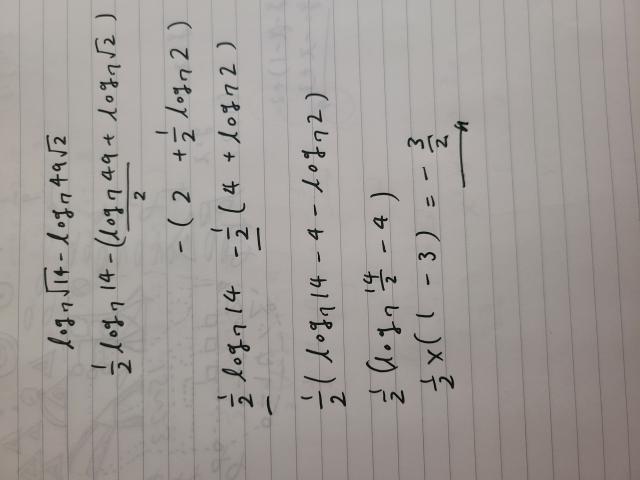 log₇√14 - log₇49√2
½ log₇14 - (log₇49 + log₇√2)
2
- (2 + ½ log₇2)
½ log₇14 - ½(4 + log₇2)
½(log₇14 - 4 - log₇2)
½(log₇ 14/2 - 4)
½ × (1 - 3) = - 3/2